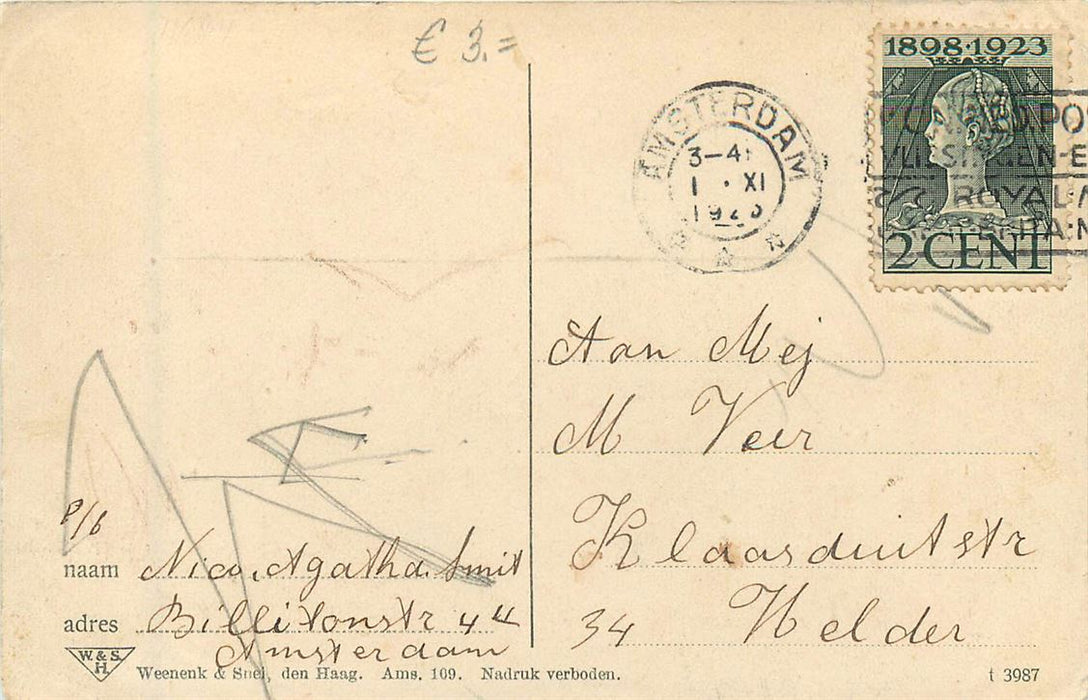 € 3.=
1898·1923
AMSTERDAM
3-4
1 · XI
1923
VLISSINGEN-E
ROYAL
2 CENT
Aan Mej
M Veer
Klaasduitstr
34 Helder
P/b
naam Nico. Agatha. Smit
adres Billitonstr 4 II
Amsterdam
W. & S.
H.
Weenenk & Snel, den Haag. Ams. 109. Nadruk verboden.
t 3987